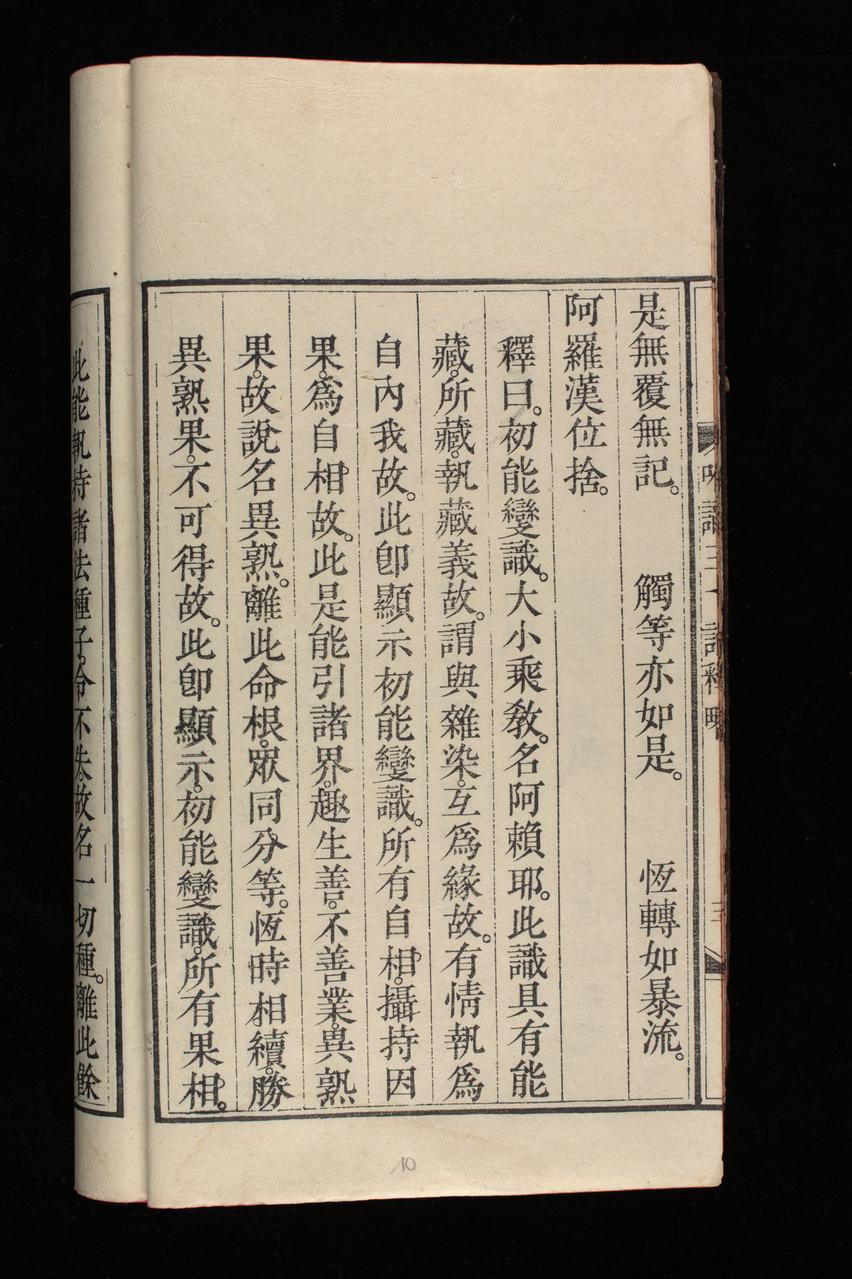 是無覆無記。 觸等亦如是。 恆轉如暴流。
阿羅漢位捨。
釋曰。初能變識。大小乘教。名阿賴耶。此識具有能
藏。所藏。執藏義故。謂與雜染。互爲緣故。有情執爲
自內我故。此卽顯示初能變識。所有自相。攝持因
果。爲自相故。此是能引諸界。趣生善。不善業。異熟
果。故說名異熟。離此命根。眾同分等。恆時相續。勝
異熟果。不可得故。此卽顯示。初能變識。所有果相。
此能執持諸法種子。令不失故。名一切種。離此餘
三
10